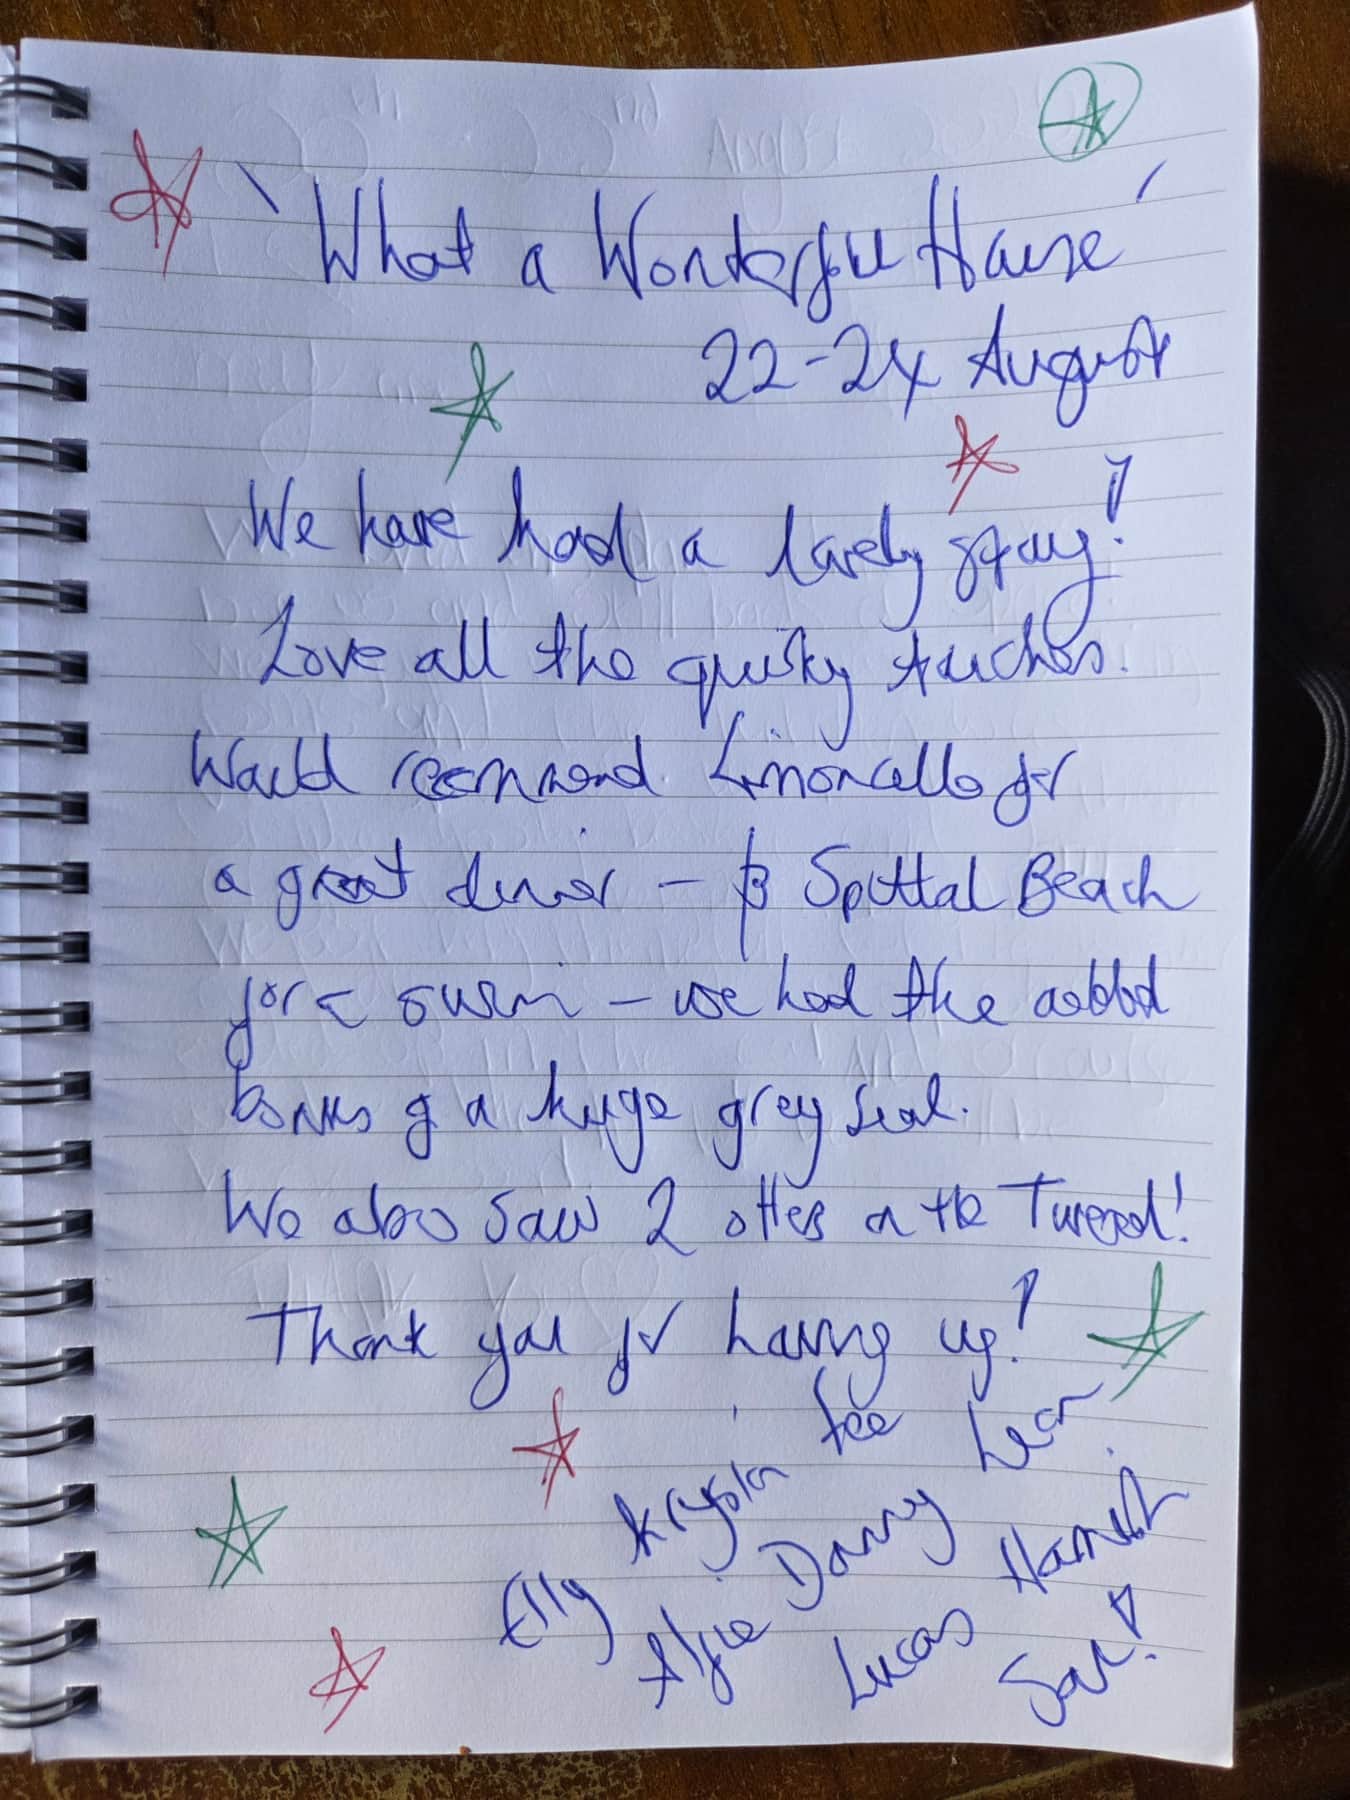 'What a Wonderful House'
22-24 August
We have had a lovely stay!
Love all the quirky touches.
Would recommend Limoncello for
a great dinner - & Spittal Beach
for a swim - we had the added
bonus of a huge grey seal.
We also saw 2 otters on the Tweed!
Thank you for having us!
Fee Leon
Krysten Danny Hamish
Elly Alfie Lucas Sam!